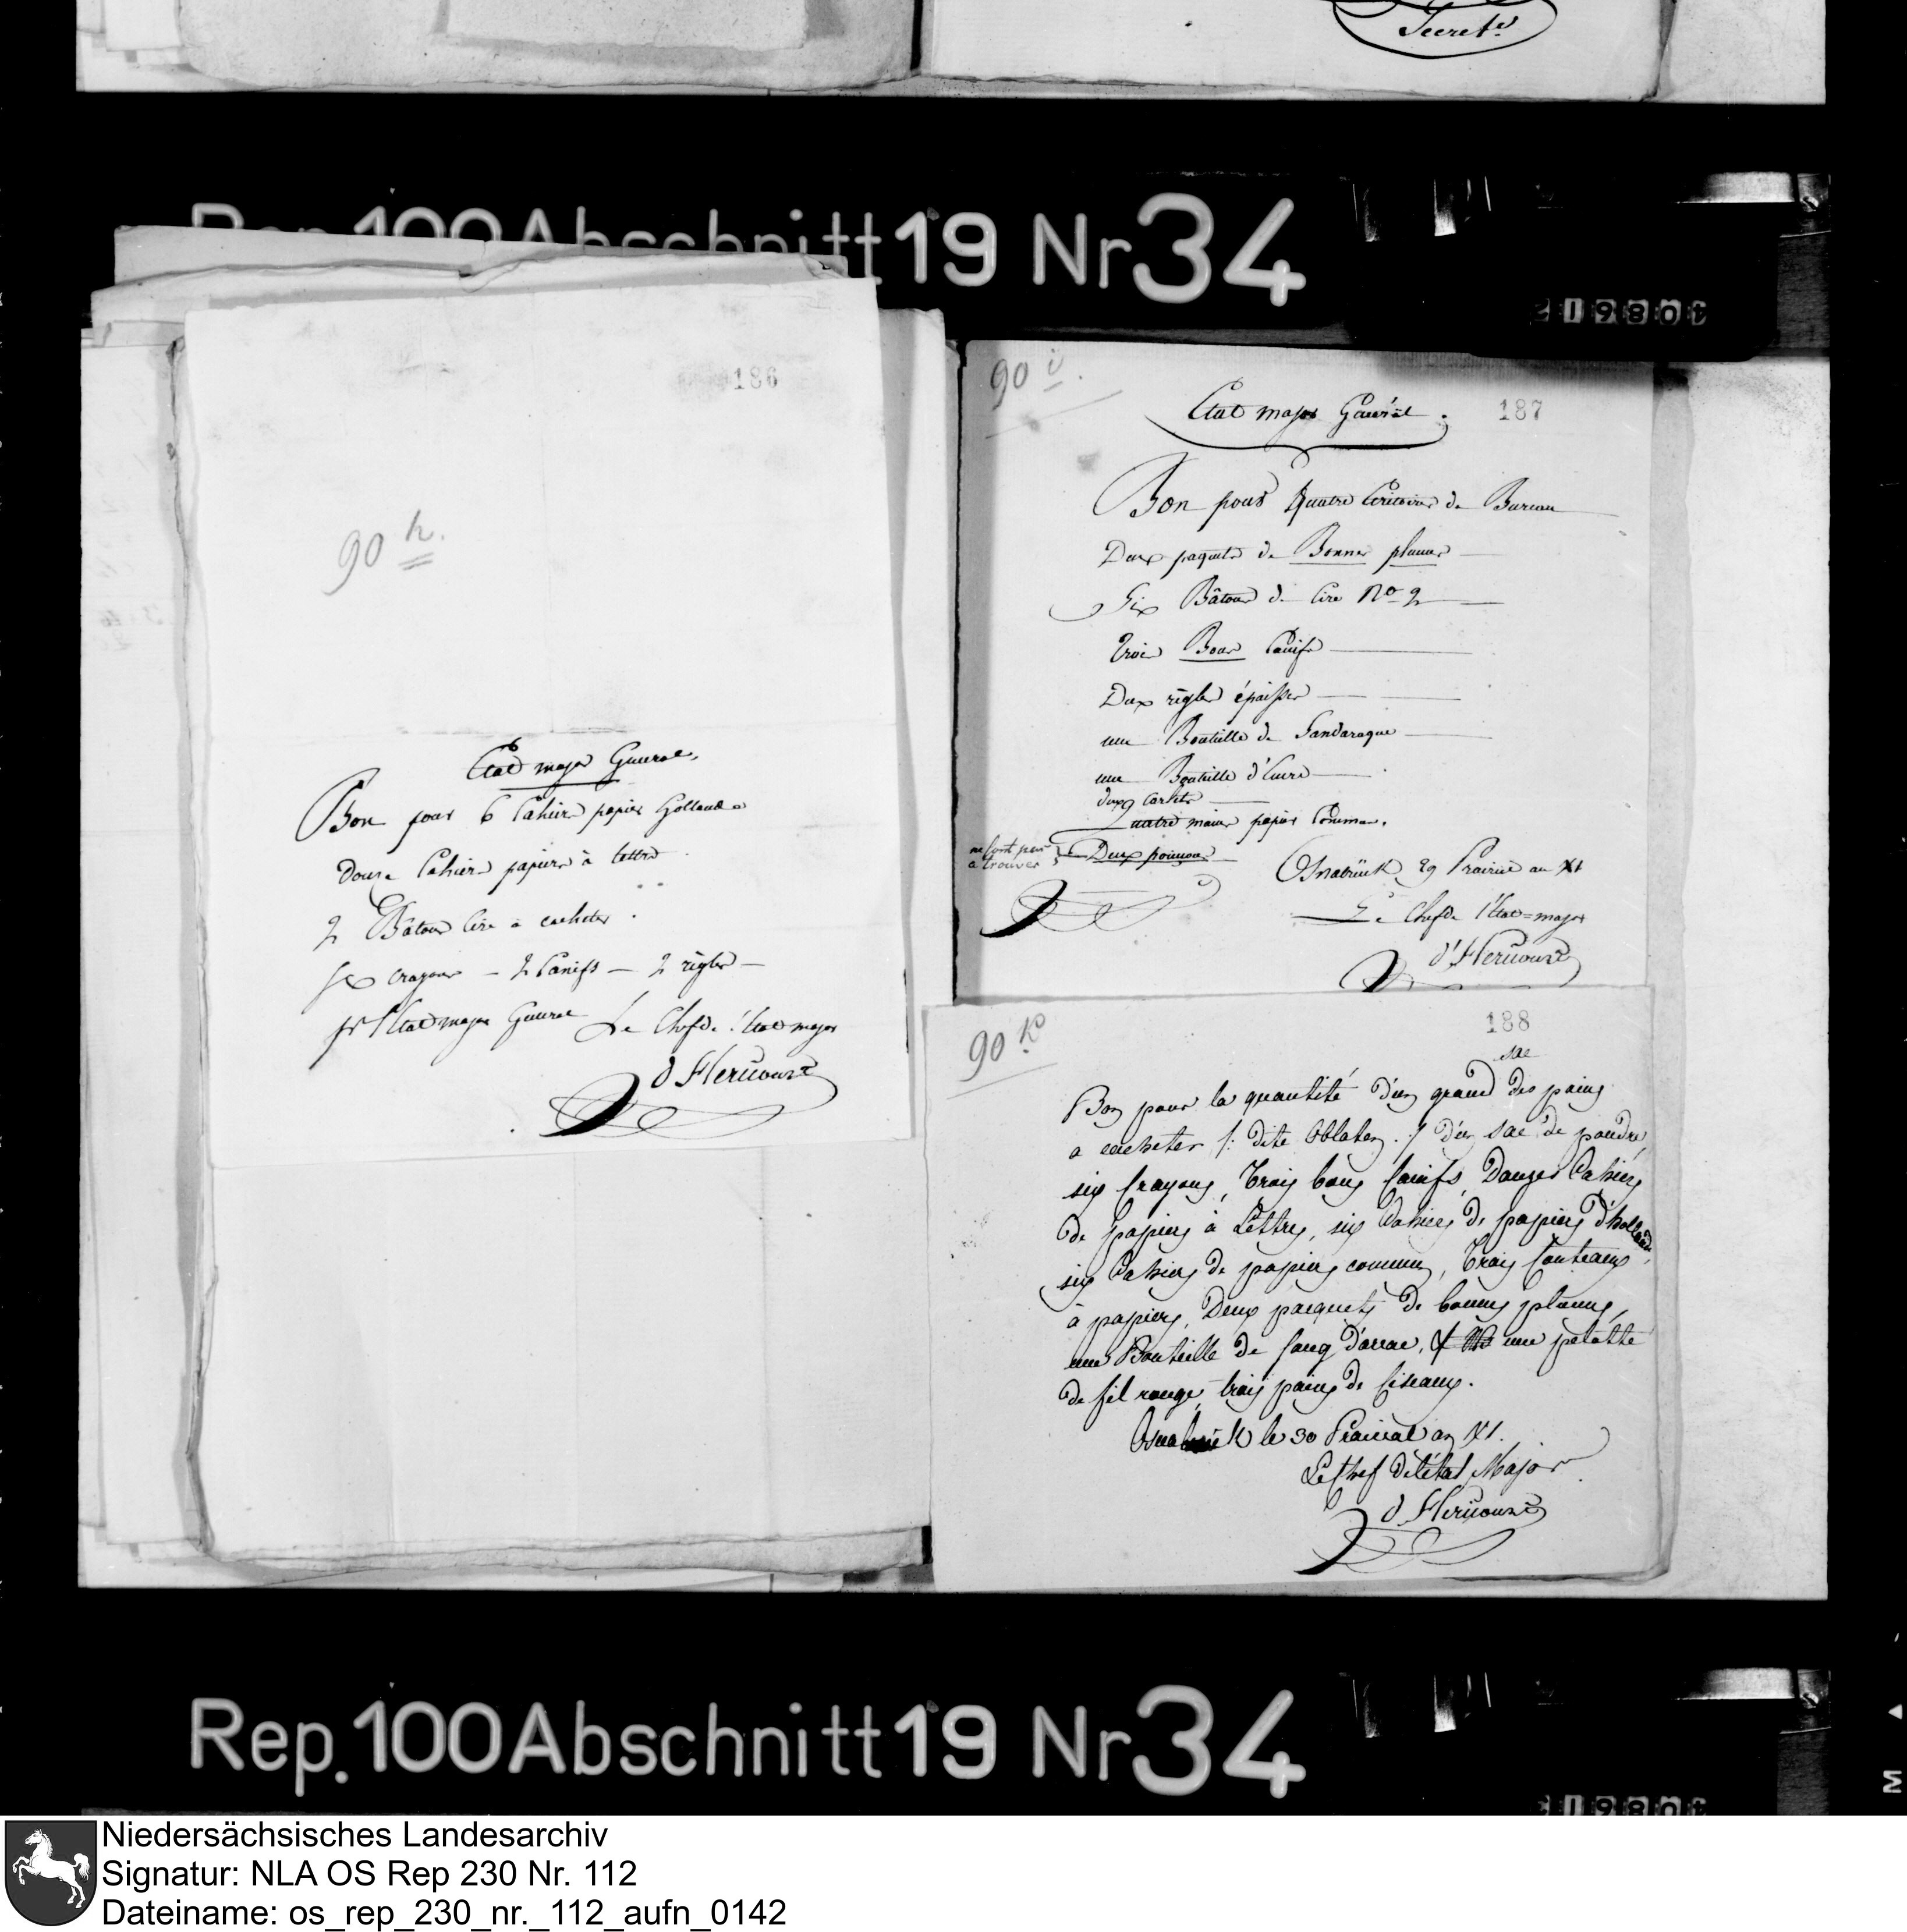 Secret.
Rep. 100 Abschnitt 19 Nr 34
219804
186
90 h.
Etat major General.
Bon pour 6 Cahiers papier Hollande
douze Cahiers papier à lettre
2 Bâtons Cire à cacheter.
six crayons — 2 Canifs — 2 règles —
pr l'Etat major General Le Chef de l'Etat major
d'Hericourt
90 i.
187
Etat major Général.
Bon pour quatre Ecritoires de Bureau
Deux paquets de Bonnes plumes —
Six Bâtons de Cire No 2
trois Bons Canifs
Deux règles épaisses
une Bouteille de Sandaraque
une Bouteille d'Encre
deux
quatre mains papier Commun.
ne sont pas
a trouver
Deux poinçons
Osnabrück 29 Prairial an XI
Le Chef de l'Etat=major
d'Hericourt
90 k
188
sac
Bon pour la quantité d'un grand des pains
a cacheter /: dite Oblaten :/ d'un sac de poudre,
six Crayons, trois bons Canifs, Douzes Cahiers
de papiers à Lettres, six Cahiers de papiers d'hollande
six Cahiers de papiers commun, trois Couteaux
à papiers, Deux pacquets de bonnes plumes,
une Bouteille de Sang d'arac, & une pelotte
de fil rouge, trois paires de Ciseaux.
Osnabrück le 30 Prairial an XI.
Le Chef de l'état Major
d'Hericourt
Rep. 100 Abschnitt 19 Nr 34
M
Niedersächsisches Landesarchiv
Signatur: NLA OS Rep 230 Nr. 112
Dateiname: os_rep_230_nr._112_aufn_0142